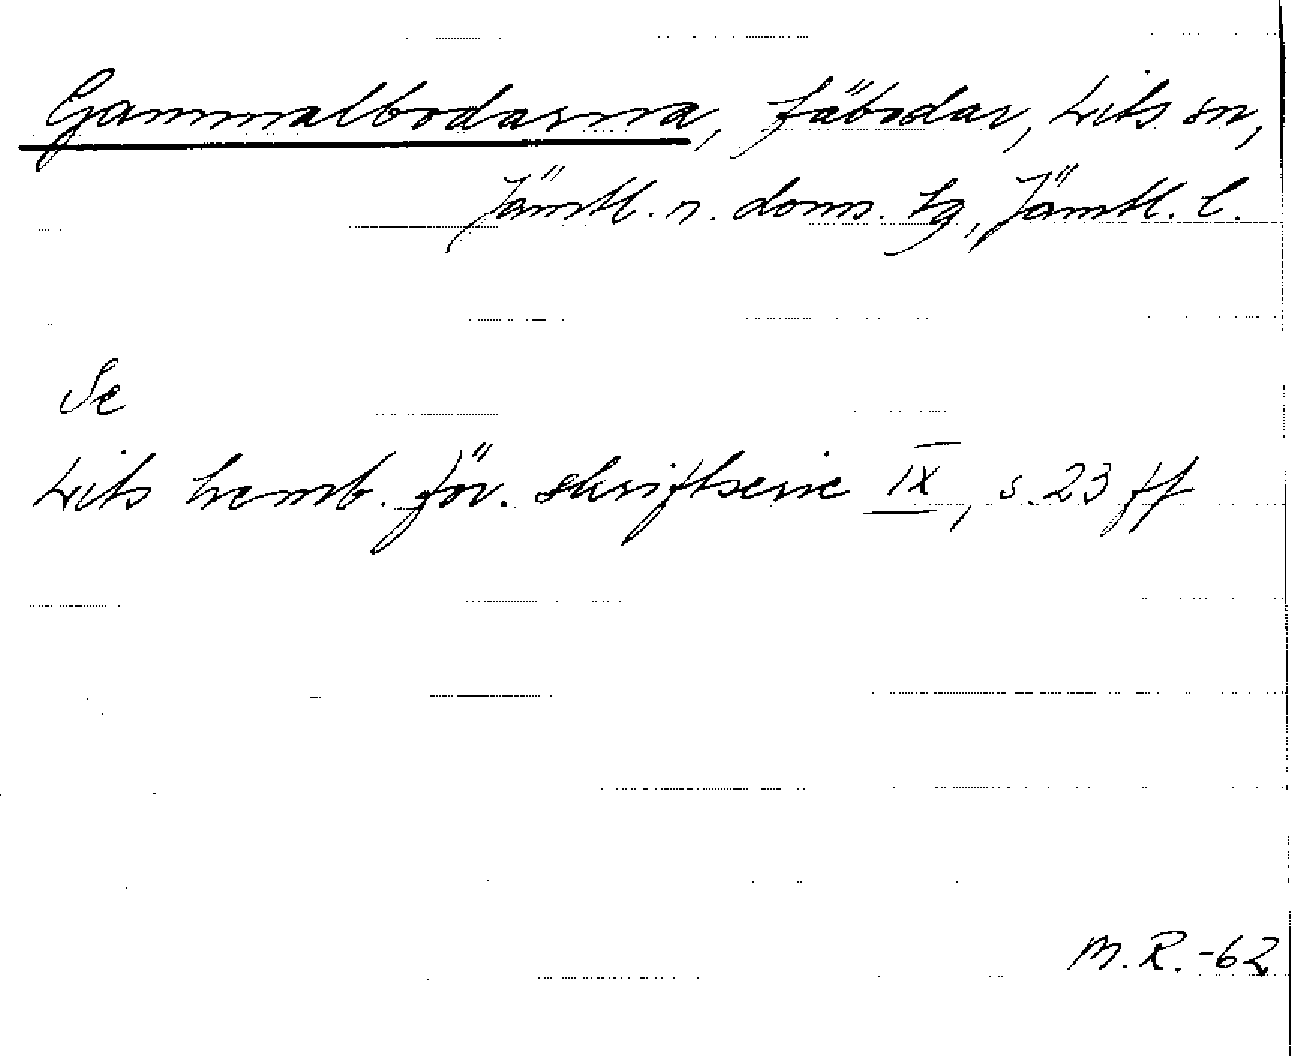 Gammalbodarna, fäbodar, Lits sn,
Jämtl. n. doms. tg, Jämtl. l.
Se
Lits hemb. för. skriftserie IX, s. 23 ff
M.R.-62